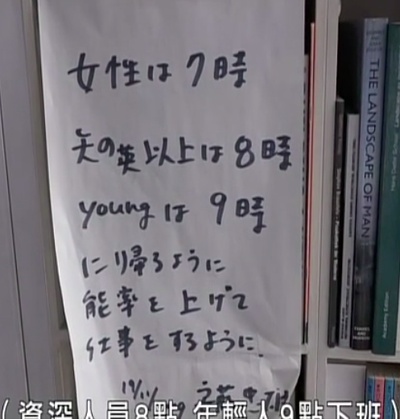 女性は7時
の英以上は8時
youngは9時
に帰るように
能率を上げて
仕事をするように
THE LANDSCAPE OF MAN
(資深人員8點 年輕人9點下班)